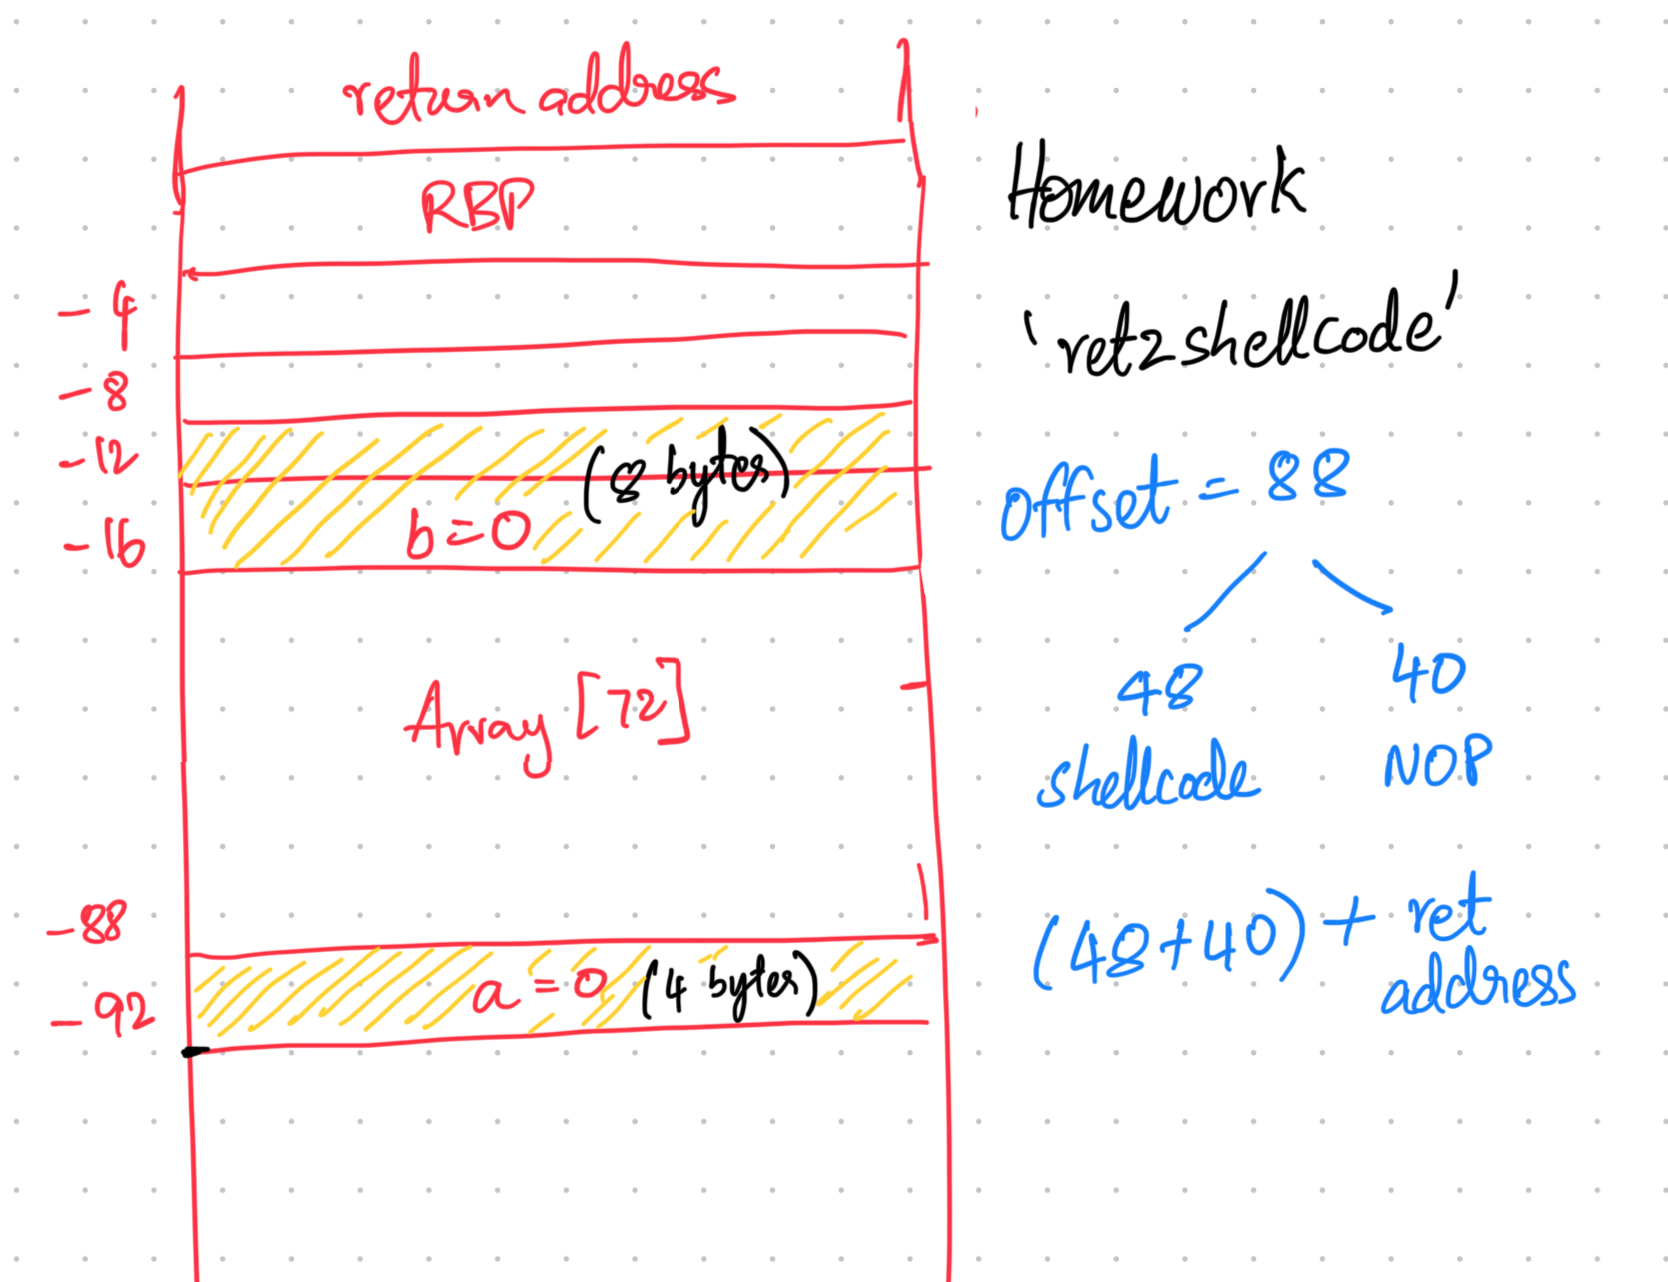 return address
RBP
-4
-8
-12
(8 bytes)
-16
b=0
Array [72]
-88
a=0 (4 bytes)
-92
Homework
'ret2shellcode'
offset = 88
48
shellcode
40
NOP
(48+40) + ret
address